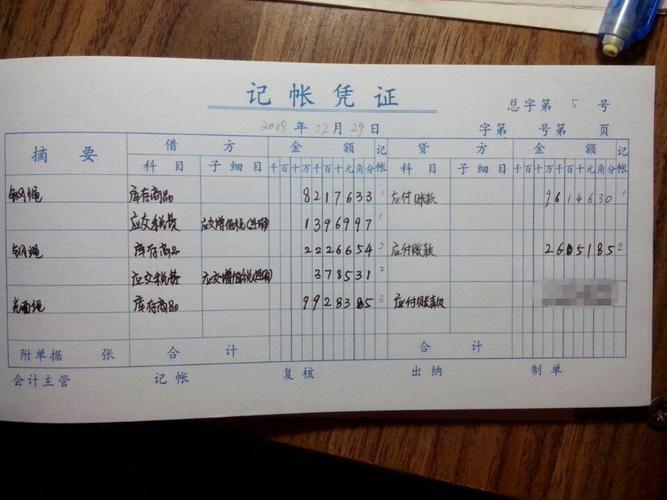 记帐凭证
总字第 5 号
2008 年 02 月 29 日 字第 号第 页
摘要 借方 金额 记帐 贷方 金额 记帐
科目 子细目 千百十万千百十元角分 科目 子细目 千百十万千百十元角分
钢绳 库存商品 8217633 1 应付账款 9614630 1
应交税费 应交增值税(进项) 1396997 1
钢绳 库存商品 2226654 2 应付账款 2605185 2
应交税费 应交增值税(进项) 378531 2
光面绳 库存商品 9928385 3 应付账款
附单据 张 合计 合计
会计主管 记帐 复核 出纳 制单